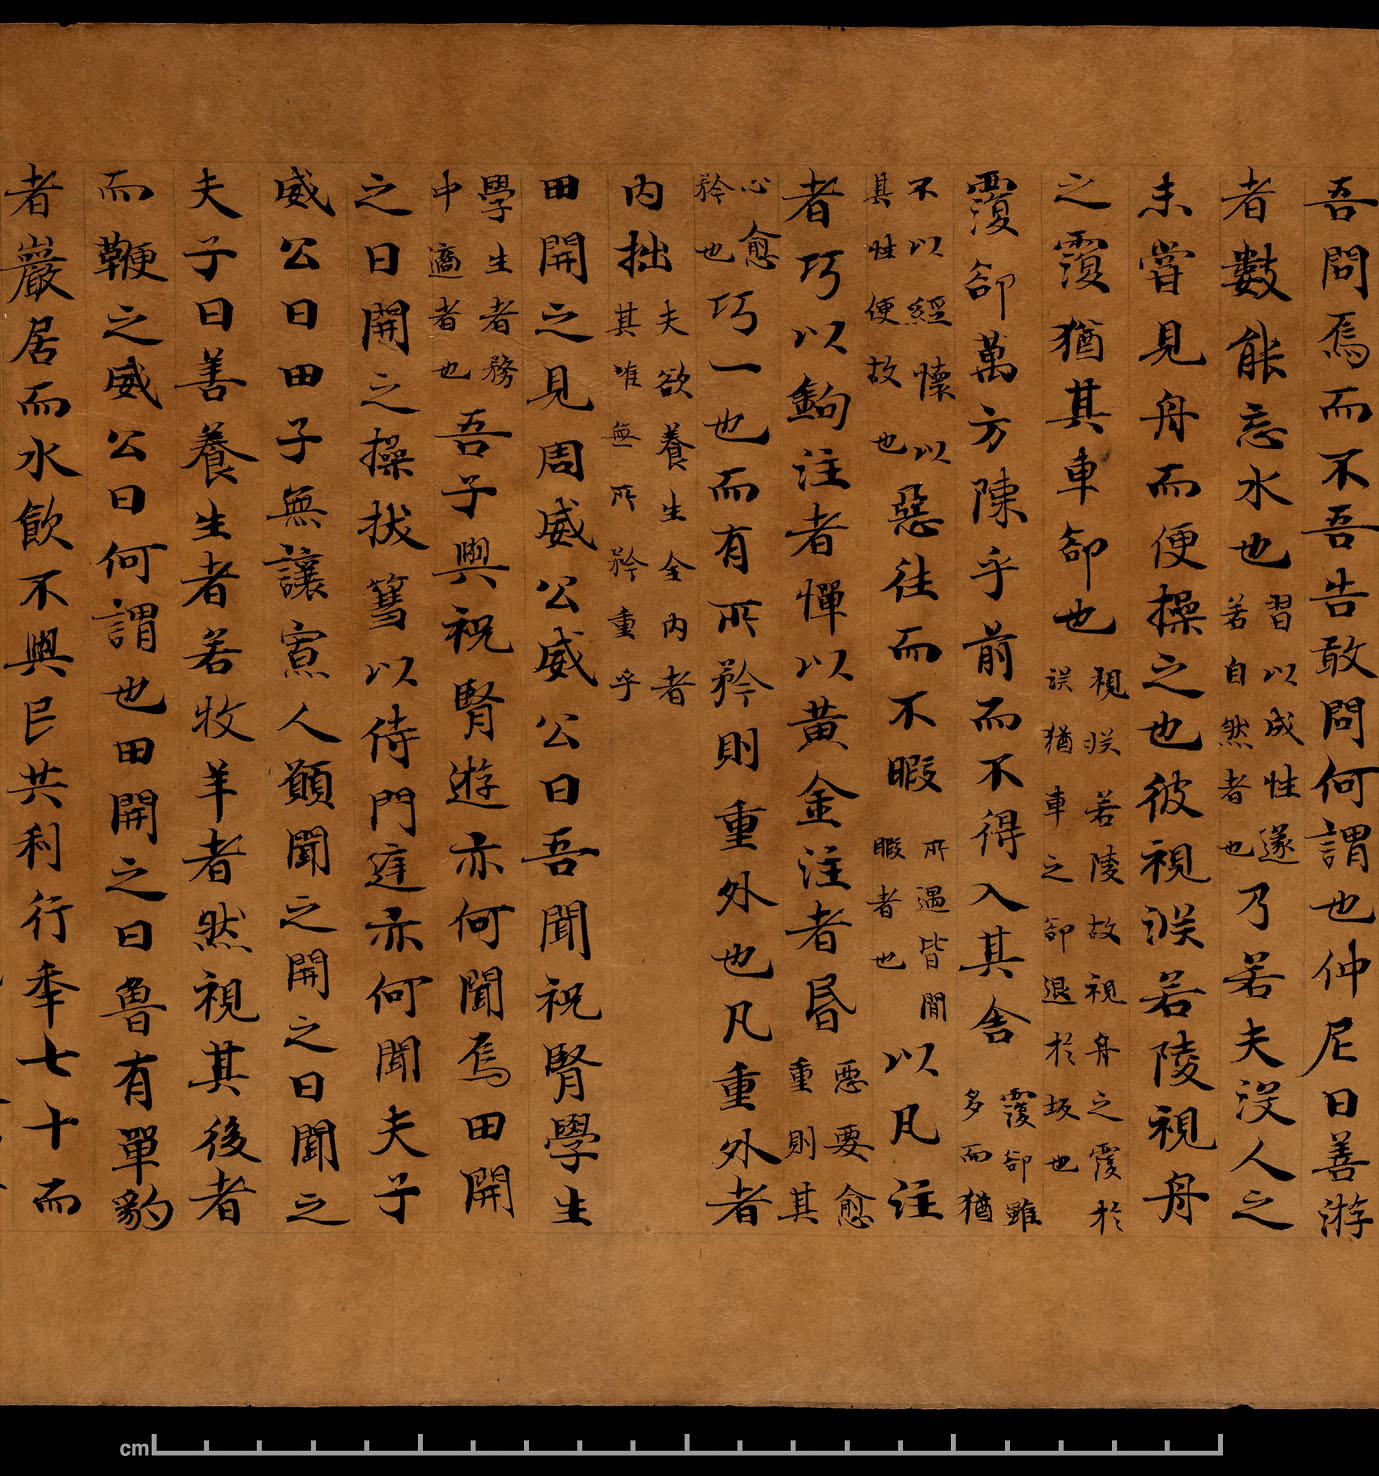 吾問焉而不吾告敢問何謂也仲尼曰善游
者數能忘水也習以成性遂若自然者也乃若夫没人之
未嘗見舟而便操之也彼視淵若陵視舟
之覆猶其車郤也視淵若陵故視舟之覆於淵猶車之郤退於坂也
覆郤萬方陳乎前而不得入其舍覆郤雖多而猶
不以經懷以其性便故也惡往而不暇所遇皆閒暇者也以凡注
者巧以鉤注者憚以黄金注者昬惡要愈重則其
心愈矜也巧一也而有所矜則重外也凡重外者
内拙夫欲養生全内者其唯無所矜重乎
田開之見周威公威公曰吾聞祝腎學生
學生者務中適者也吾子與祝腎遊亦何聞焉田開
之曰開之操拔篲以侍門庭亦何聞夫子
威公曰田子無讓寡人願聞之開之曰聞之
夫子曰善養生者若牧羊者然視其後者
而鞭之威公曰何謂也田開之曰魯有單豹
者巖居而水飲不與民共利行年七十而
cm